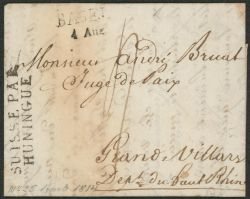 BASEL
4 Aug
Monsieur André Bruat
Juge de Paix
Grand Villars
Dept. du haut Rhin
SUISSE PAR
HUNINGUE